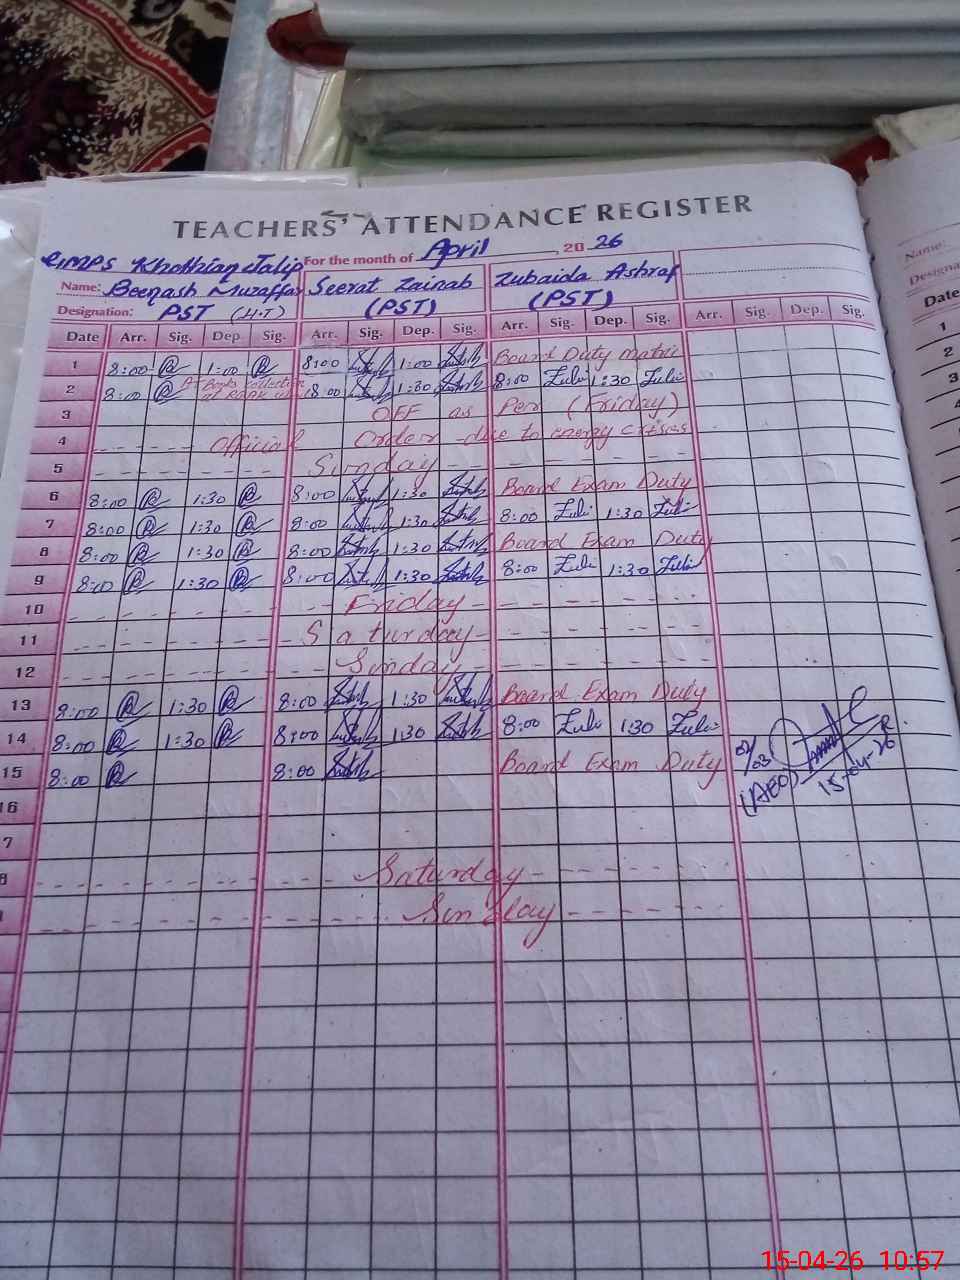 TEACHERS' ATTENDANCE REGISTER
GMPS Khothian Jalip For the month of April 20 26
Name: Beenash Muzaffar Seerat Zainab Zubaida Ashraf
Designation: PST (H.T) (PST) (PST)
Date Arr. Sig. Dep. Sig. Arr. Sig. Dep. Sig. Arr. Sig. Dep. Sig. Arr. Sig. Dep. Sig.
1 8:00 1:00 8:00 1:00 Board Duty matric
2 8:00 Books collection 8:00 1:30 8:00 Zubi 1:30 Zubi
3 OFF as Per (Friday)
4 Official Order due to energy crises
5 Sunday
6 8:00 1:30 8:00 1:30 Board Exam Duty
7 8:00 1:30 8:00 1:30 8:00 Zubi 1:30 Zubi
8 8:00 1:30 8:00 1:30 Board Exam Duty
9 8:00 1:30 8:00 1:30 8:00 Zubi 1:30 Zubi
10 Friday
11 Saturday
12 Sunday
13 8:00 1:30 8:00 1:30 Board Exam Duty
14 8:00 1:30 8:00 1:30 8:00 Zubi 1:30 Zubi
15 8:00 8:00 Board Exam Duty
02/03
(AEO) 15-04-26
16
7
8 Saturday
Sunday
Name:
Designa
Date
1
2
3
4
15-04-26 10:57